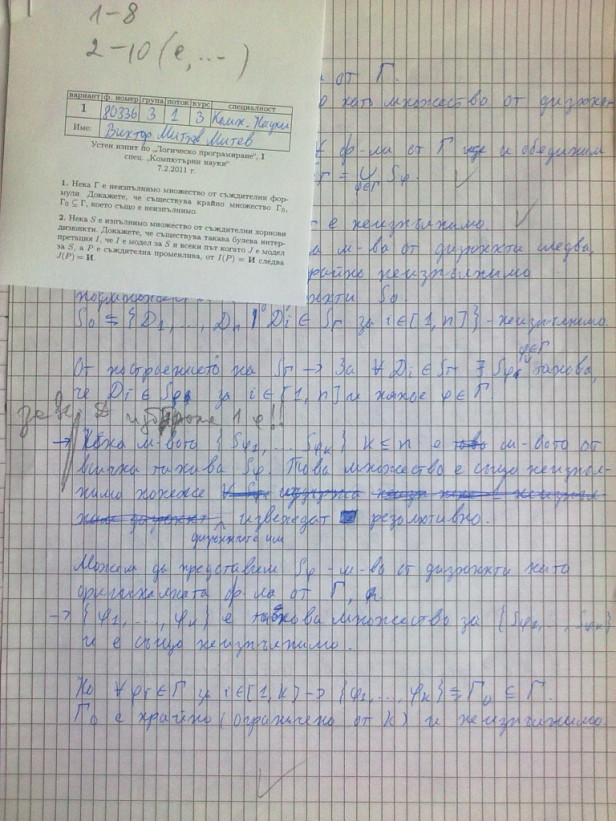 1-8
2-10 (е, ...)
вариант ф. номер група поток курс специалност
1 80336 3 1 3 Комп. Науки
Име: Виктор Митков Митев
Устен изпит по „Логическо програмиране“, 1
спец. „Компютърни науки“
7.2.2011 г.
1. Нека Г е неизпълнимо множество от съждителни фор-
мули. Докажете, че съществува крайно множество Г₀,
Г₀ ⊆ Г, което също е неизпълнимо.
2. Нека S е изпълнимо множество от съждителни хорнови
дизюнкти. Докажете, че съществува такава булева интер-
претация I, че I е модел за S и всеки път когато J е модел
за S, а P е съждителна променлива, от I(P) = И следва
J(P) = И.
от Г.
като множество от дизюнк-
ф-ли от Г и обединим
= ∪ Sφ.
φ∈Г
е неизпълнимо.
м-ва от дизюнкти следва,
крайно неизпълнимо
S₀
S₀ ⇋ {D₁, ..., Dₙ | Di ∈ Sг за i∈[1,n]} - неизпълнимо
От построението на Sг → За ∀ Di ∈ Sг ∃ Sφ такова,
φ∈Г
че Di ∈ Sφ за i∈[1,n] и някое φ∈Г
1 φ!!
→ Нека м-вото {Sφ₁, ... Sφₖ} k ≤ n е м-вото от
всички такива Sφ. Това множество е също неизпъл-
нимо понеже
дизюнктите им
извеждат ■ резолютивно.
Можем да представим Sφ - м-во от дизюнкти като
оригиналната ф-ла от Г,
→ {φ₁, ..., φₖ} е такова множество за {Sφ₁, ..., Sφₖ}
и е също неизпълнимо.
Но ∀ φi ∈ Г за i∈[1,k] → {φ₁, ..., φₖ} ⇋ Г₀ ⊆ Г.
Г₀ е крайно (ограничено от k) и неизпълнимо.